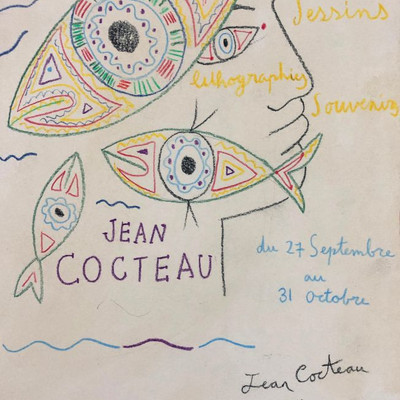 Dessins
lithographies
Souvenirs
JEAN
COCTEAU
du 27 Septembre
au
31 Octobre
Jean Cocteau